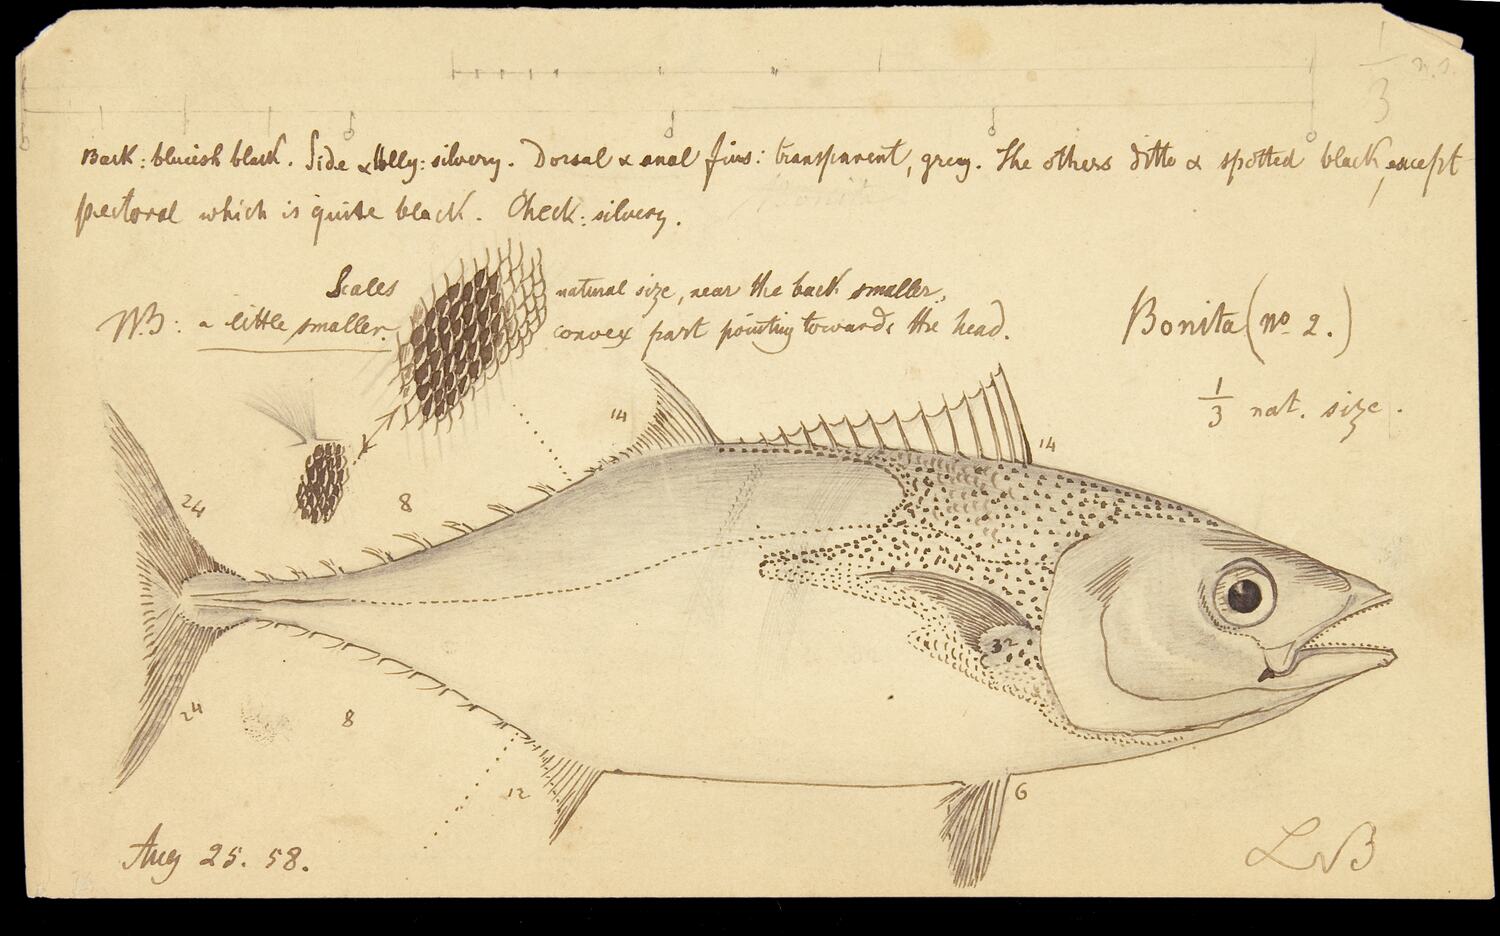 1/3 n.s.
Back: blueish black. Side & belly: silvery. Dorsal & anal fins: transparent, grey. The others ditto & spotted black, except
pectoral which is quite black. Cheek: silvery.
Bonita
Scales natural size, near the back smaller,
NB: a little smaller. convex part pointing towards the head.
Bonita (no 2.)
1/3 nat. size.
14
14
24
8
32
24
8
12
6
Aug 25. 58.
LvB